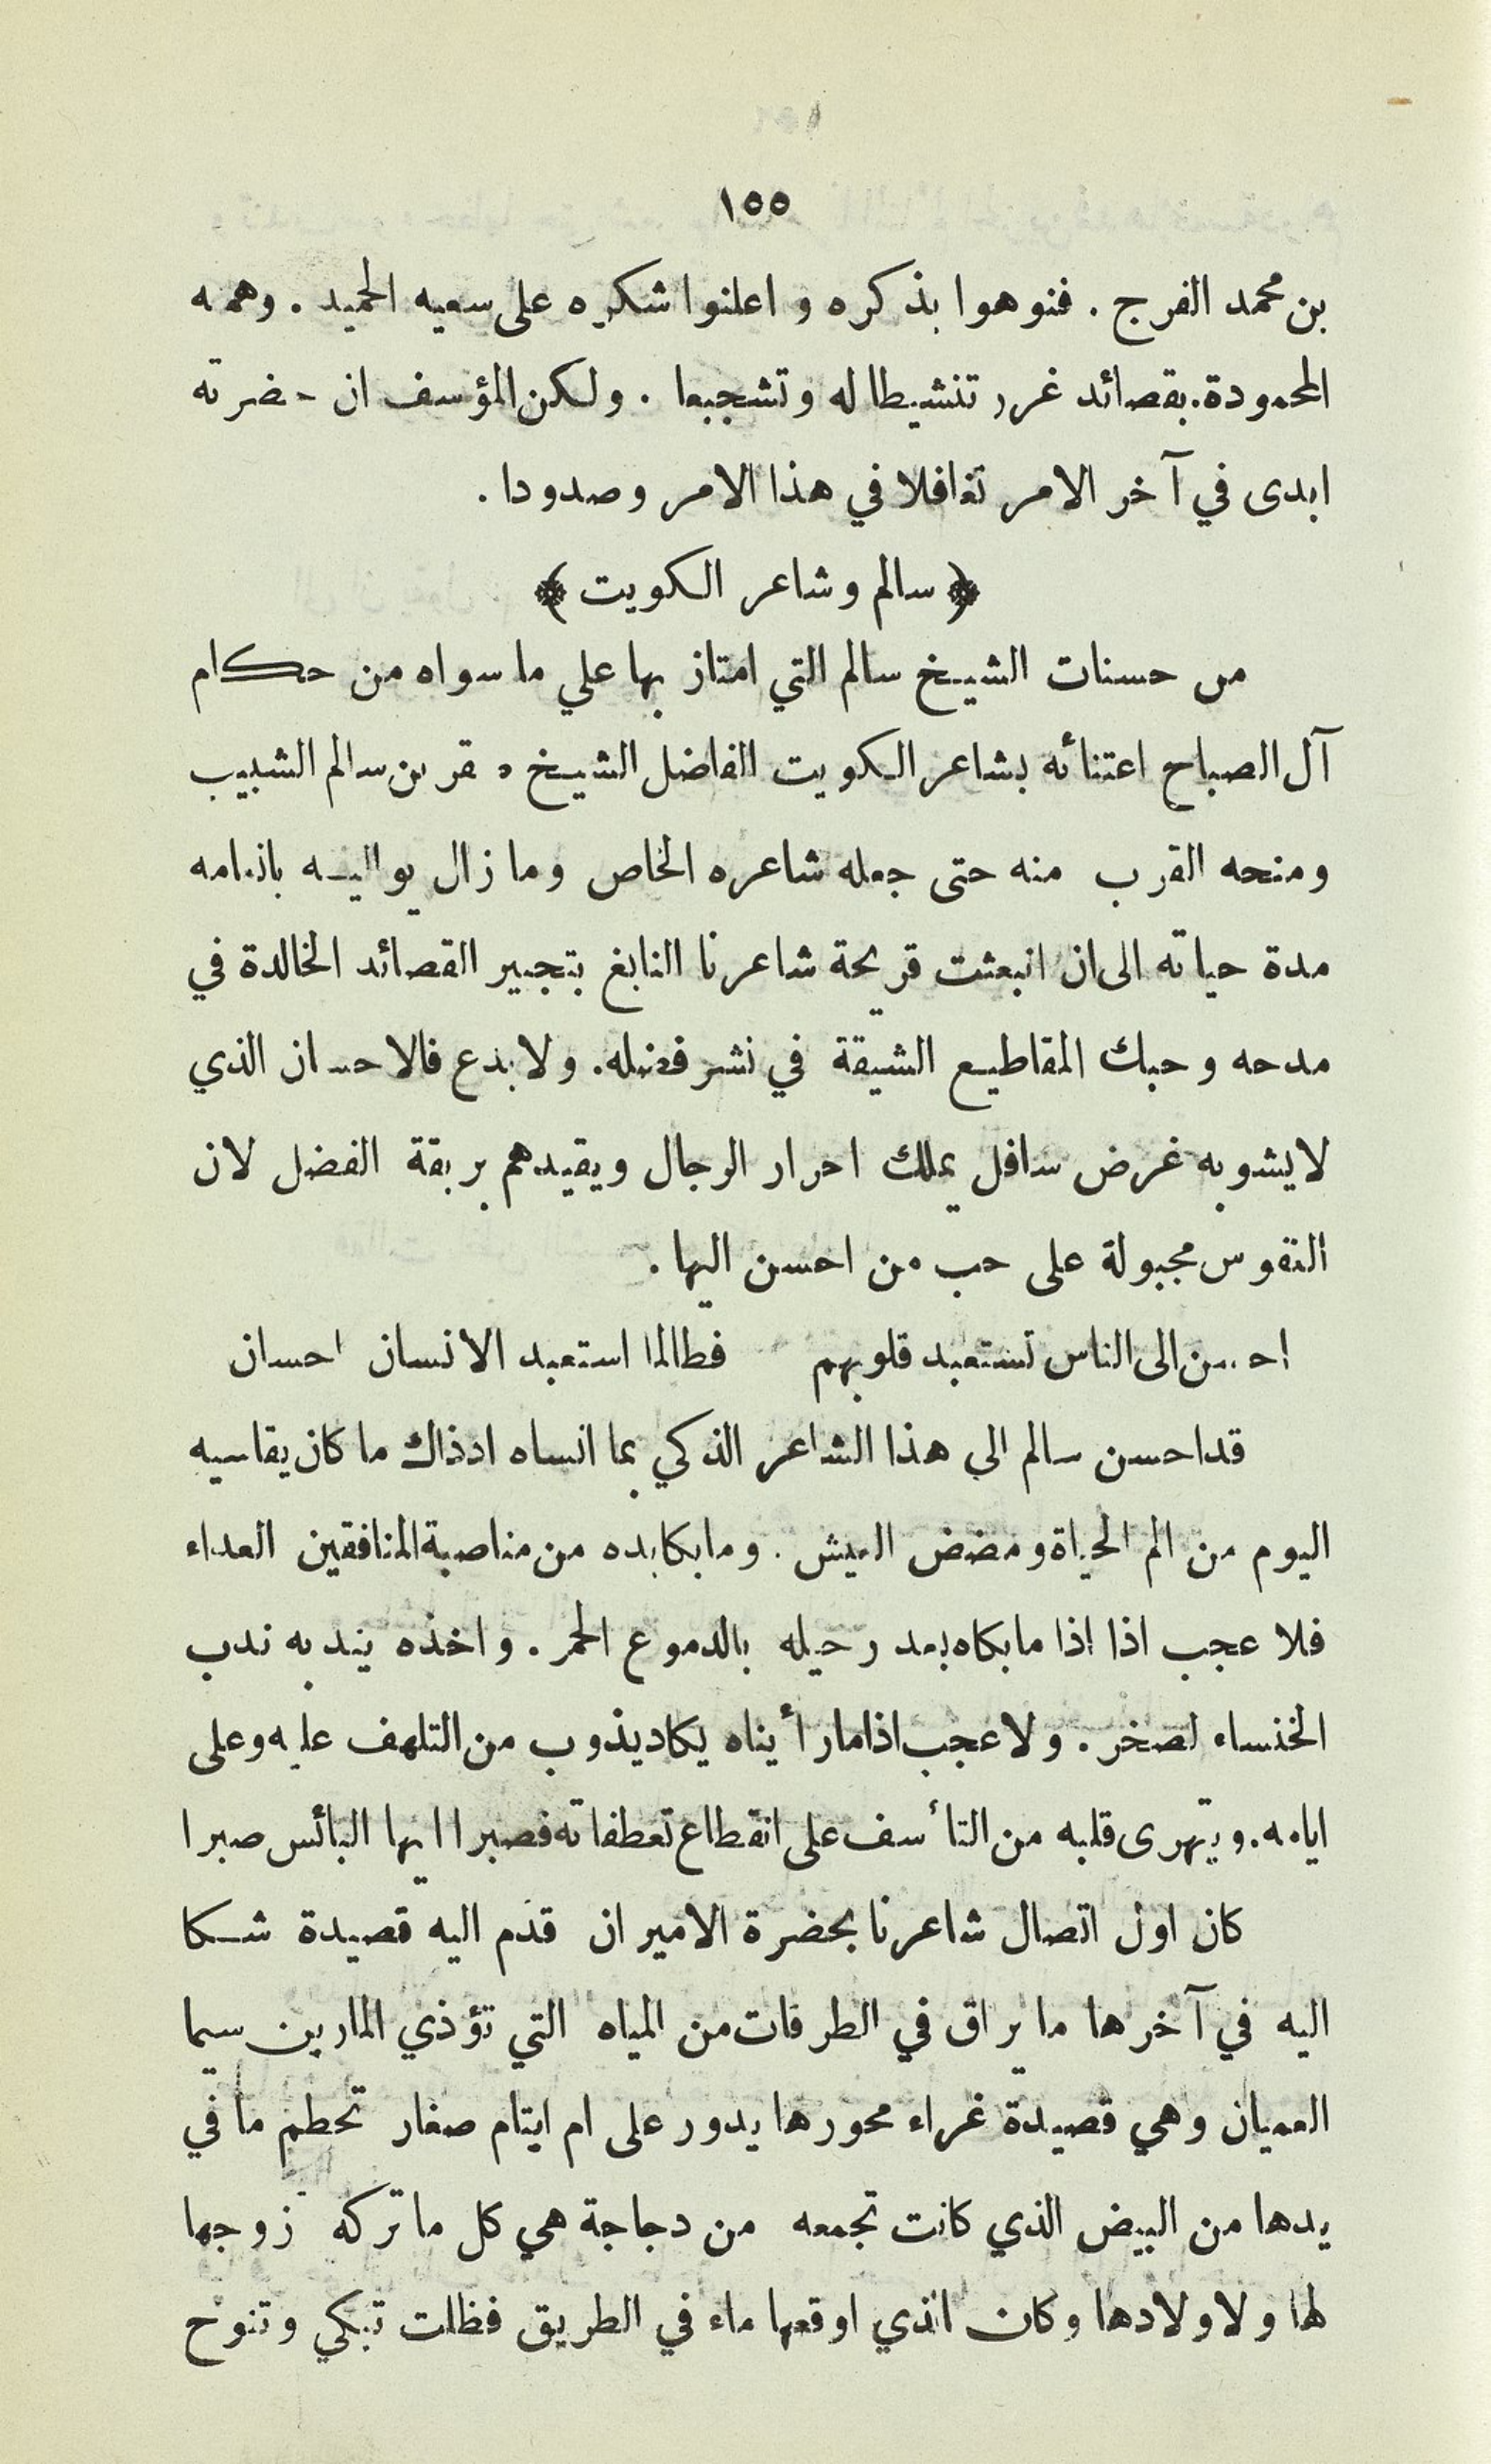 ١٥٥
بن محمد الفرج . فنوهوا بذكره و اعلنوا شكره على سعيه الحميد . وهمه
المحمودة. بقصائد غرر تنشيطا له وتشجيعا . ولكن المؤسف ان حضرته
ابدى في آخر الامر تغافلا في هذا الامر وصدودا .
﴿ سالم وشاعر الكويت ﴾
من حسنات الشيخ سالم التي امتاز بها علي ما سواه من حكام
آل الصباح اعتنائه بشاعر الكويت الفاضل الشيخ صقر بن سالم الشبيب
ومنحه القرب منه حتى جعله شاعره الخاص وما زال يواليه بانعامه
مدة حياته الى ان انبعثت قريحة شاعرنا النابغ بتحبير القصائد الخالدة في
مدحه وحبك المقاطيع الشيقة في نشر فضله. ولا بدع فالاحسان الذي
لايشوبه غرض سافل يملك احرار الرجال ويقيدهم بربقة الفضل لان
النفوس مجبولة على حب من احسن اليها .
احسن الى الناس تستعبد قلوبهم فطالما استعبد الانسان احسان
قد احسن سالم الى هذا الشاعر الذكي بما انساه اذذاك ما كان يقاسيه
اليوم من الم الحياة ومضض العيش . وما يكابده من مناصبة المنافقين العداء
فلا عجب اذا اذا ما بكاه بعد رحيله بالدموع الحمر . واخذه يندبه ندب
الخنساء لصخر . ولا عجب اذا ما رأيناه يكاد يذوب من التلهف عليه وعلى
ايامه. ويتهرى قلبه من التأسف على انقطاع تعطفاته فصبرا ايها البائس صبرا
كان اول اتصال شاعرنا بحضرة الامير ان قدم اليه قصيدة شكا
اليه في آخرها ما يراق في الطرقات من المياه التي تؤذي المارين سيما
العميان وهي قصيدة غراء محورها يدور على ام ايتام صغار تحطم ما في
يدها من البيض الذي كانت تجمعه من دجاجة هي كل ما تركه زوجها
لها ولاولادها وكان الذي اوقعها ماء في الطريق فظلت تبكي وتنوح